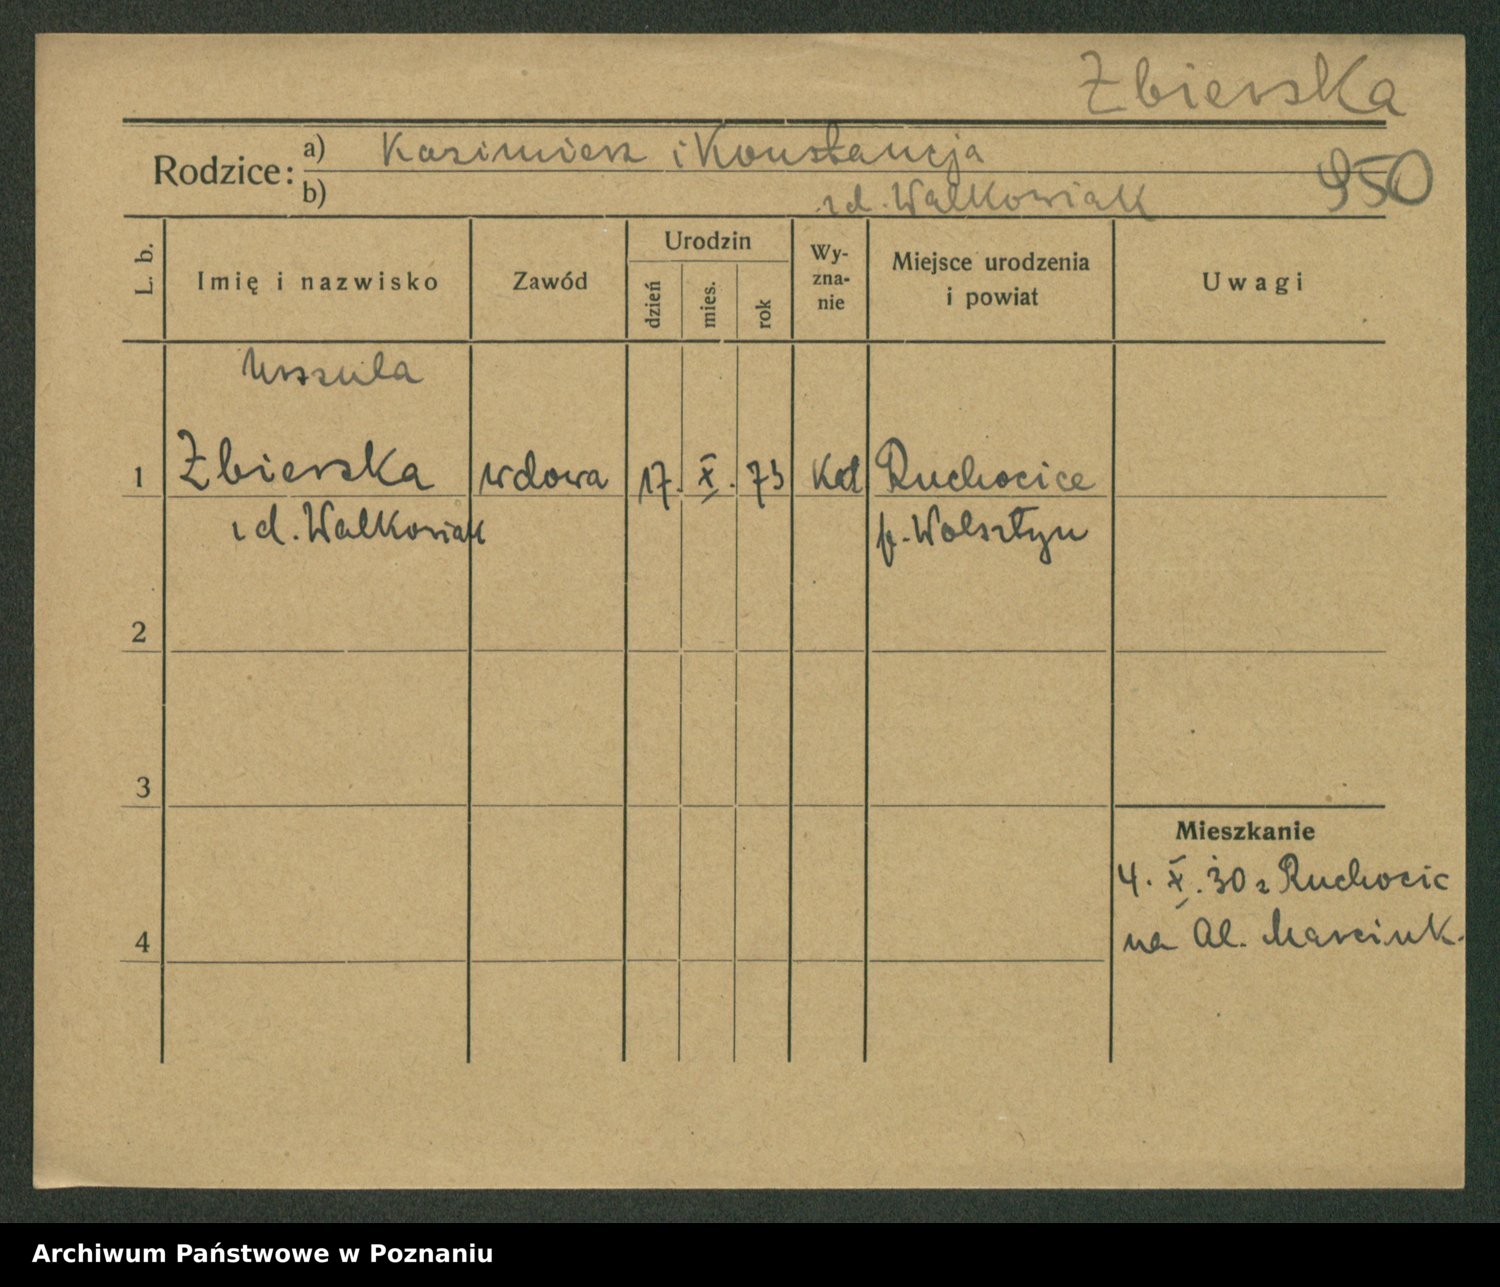 Zbierska
Rodzice: a) Kazimierz i Konstancja
b) zd. Walkowiak
950
L. b. Imię i nazwisko Zawód Urodzin dzień mies. rok Wy-zna-nie Miejsce urodzenia i powiat Uwagi
Urszula
1 Zbierska wdowa 17. X. 73 Kat Ruchocice
zd. Walkowiak p. Wolsztyn
2
3
Mieszkanie
4. X. 30 z Ruchocic
4
na Al. Marcink.
Archiwum Państwowe w Poznaniu